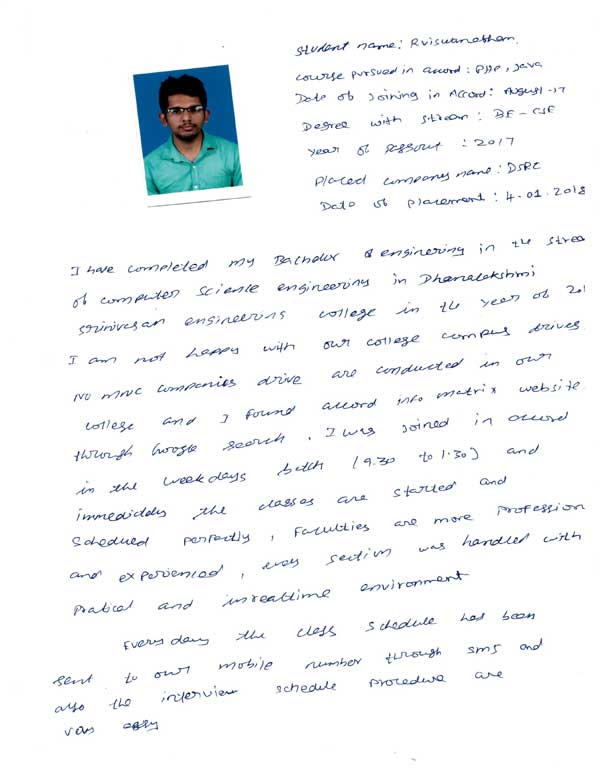 Student name: Rviswanathan
Course pursued in accord: PHP, Java
Date of Joining in Accord: August-17
Degree with Stream: BE - CSE
Year of passout : 2017
Placed company name: DSRC
Date of placement: 4.01.2018
I have completed my Bachelor of enginering in the strea
of computer science engineering in Dhanalekshmi
srinivesan engineering college in the year of 201
I am not happy with our college campus drives.
NO MNC companies drive are conducted in our
college and I found accord info matrix website
through Google search. I was joined in accord
in the weekdays batch (9.30 to 1.30) and
immediatley the classes are started and
Scheduled perfectly, Faculties are more profession
and experienced, section was handled with
Pratical and inrealtime environment
Everyday the class schedule has been
sent to our mobile number through sms and
also the interview schedule procedure are
very easy